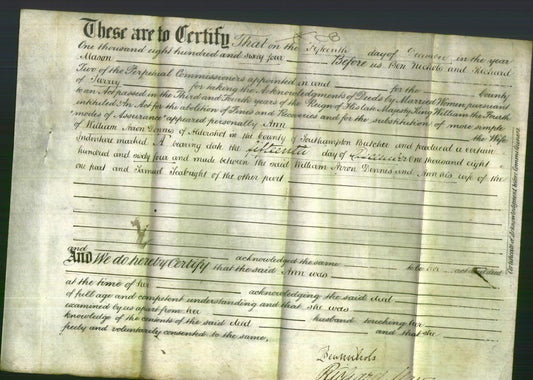 These are to Certify That on the Fifteenth day of December in the year
One thousand eight hundred and sixty four Before us Ben Nichols and Richard
Mason
Two of the Perpetual Commissioners appointed in and for the county
of Surrey for taking the Acknowledgments of Deeds by Married Women pursuant
to an Act passed in the Third and Fourth years of the Reign of His late Majesty King William the Fourth
intituled An Act for the abolition of Fines and Recoveries and for the substitution of more simple
modes of Assurance appeared personally Ann the Wife
of William Aaron Dennis of Aldershot in the County of Southampton Butcher and produced a certain
Indenture marked A bearing date the fifteenth day of December One thousand eight
hundred and sixty four and made between the said William Aaron Dennis and Ann his wife of the
one part and Samuel Seabright of the other part
and acknowledged the same to be her act and deed
AND We do hereby Certify that the said Ann was
at the time of her acknowledging the said deed
of full age and competent understanding and that she was
examined by us apart from her husband touching her
knowledge of the contents of the said deed and that she
freely and voluntarily consented to the same,
Ben Nichols
Richard
Certificate of Acknowledgment before Commissioners